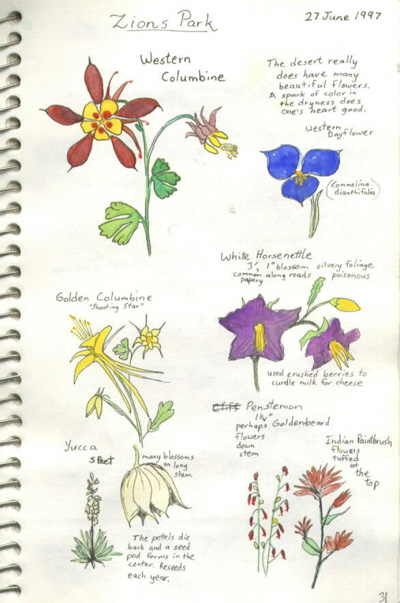 Zions Park
27 June 1997
Western
Columbine
The desert really
does have many
beautiful flowers.
A spark of color in
the dryness does
one's heart good.
Western
Dayflower
(Commelina
dianthifolia)
White Horsenettle
3', 1" blossom silvery foliage
common along roads poisonous
papery
used crushed berries to
curdle milk for cheese
Golden Columbine
"Shooting Star"
Penstemon
1 1/4"
perhaps Goldenbeard
flowers
down
stem
Yucca
5 feet
many blossoms
on long
stem
The petels die
back and a seed
pod forms in the
center. Reseeds
each year.
Indian Paintbrush
flowers
tuffed
at
the
top
31